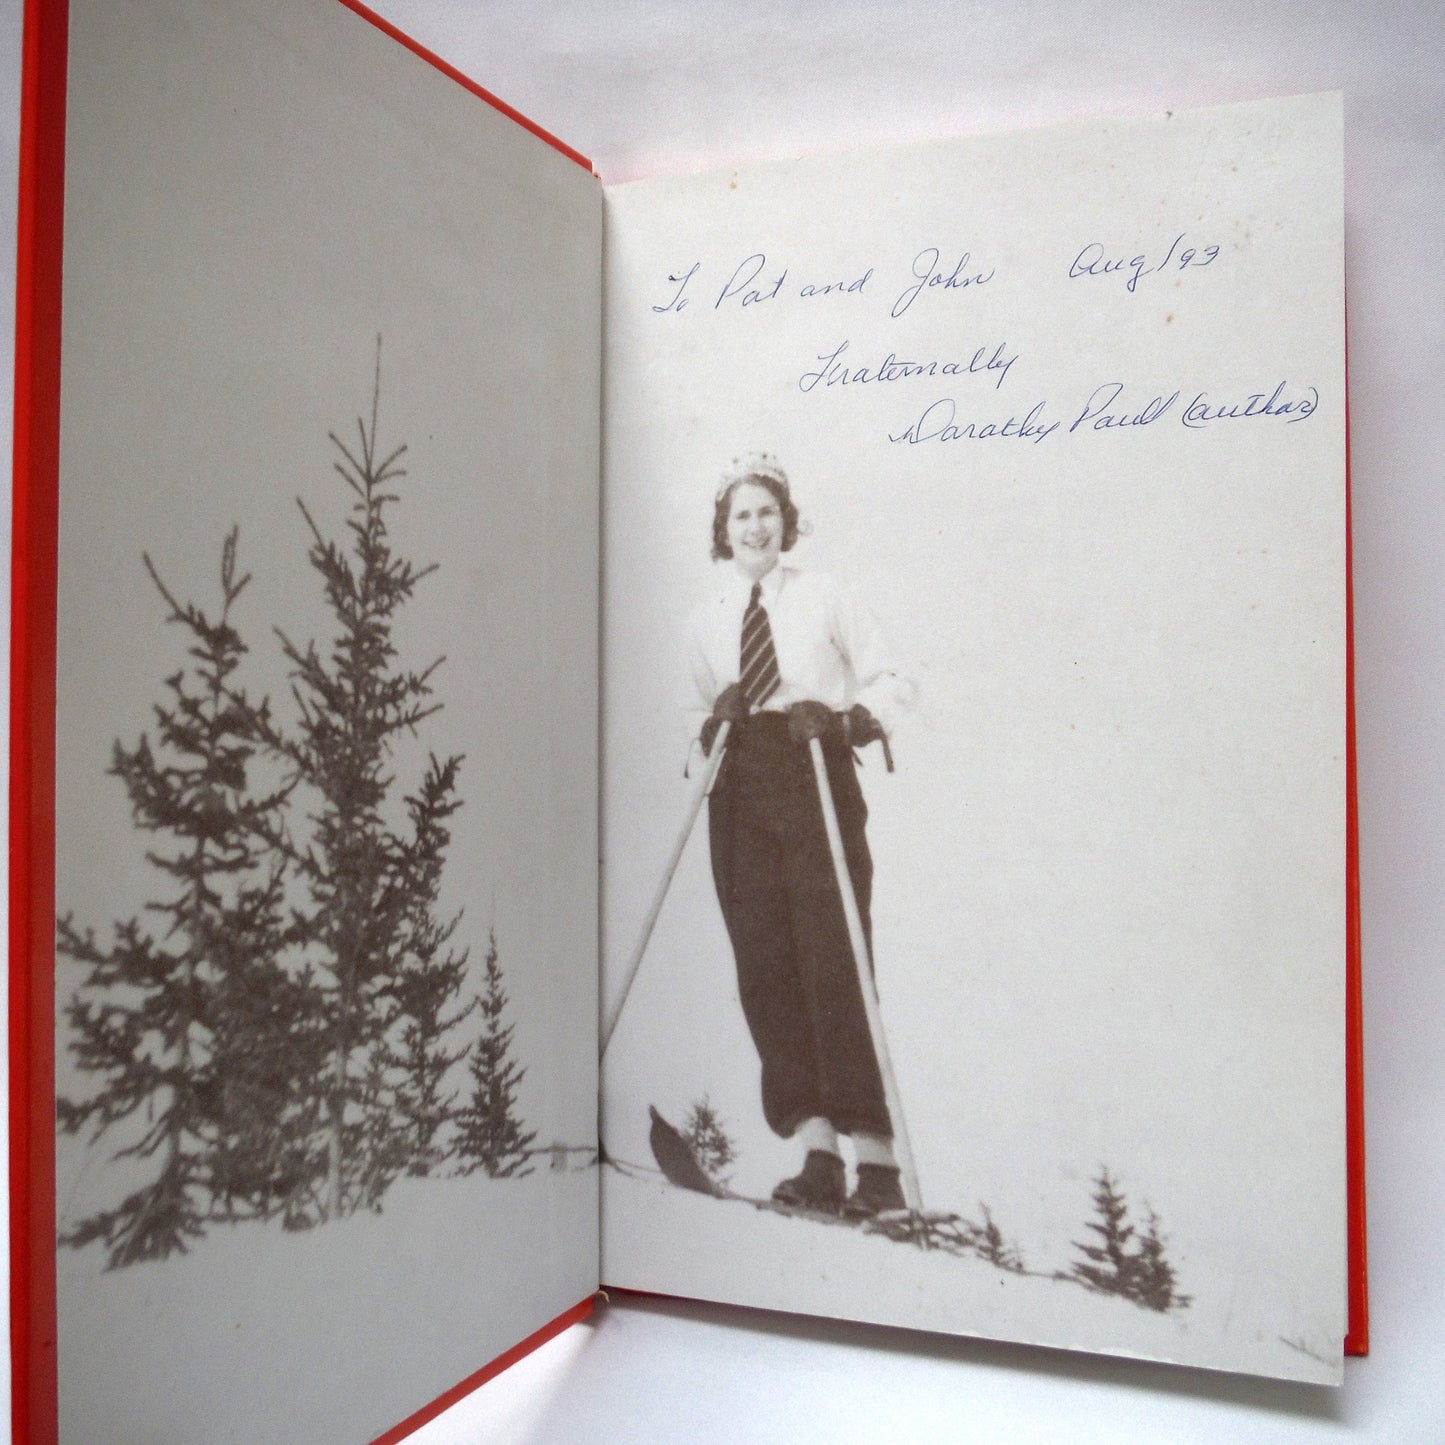 To Pat and John Aug/93
Fraternally
Dorothy Paull (author)